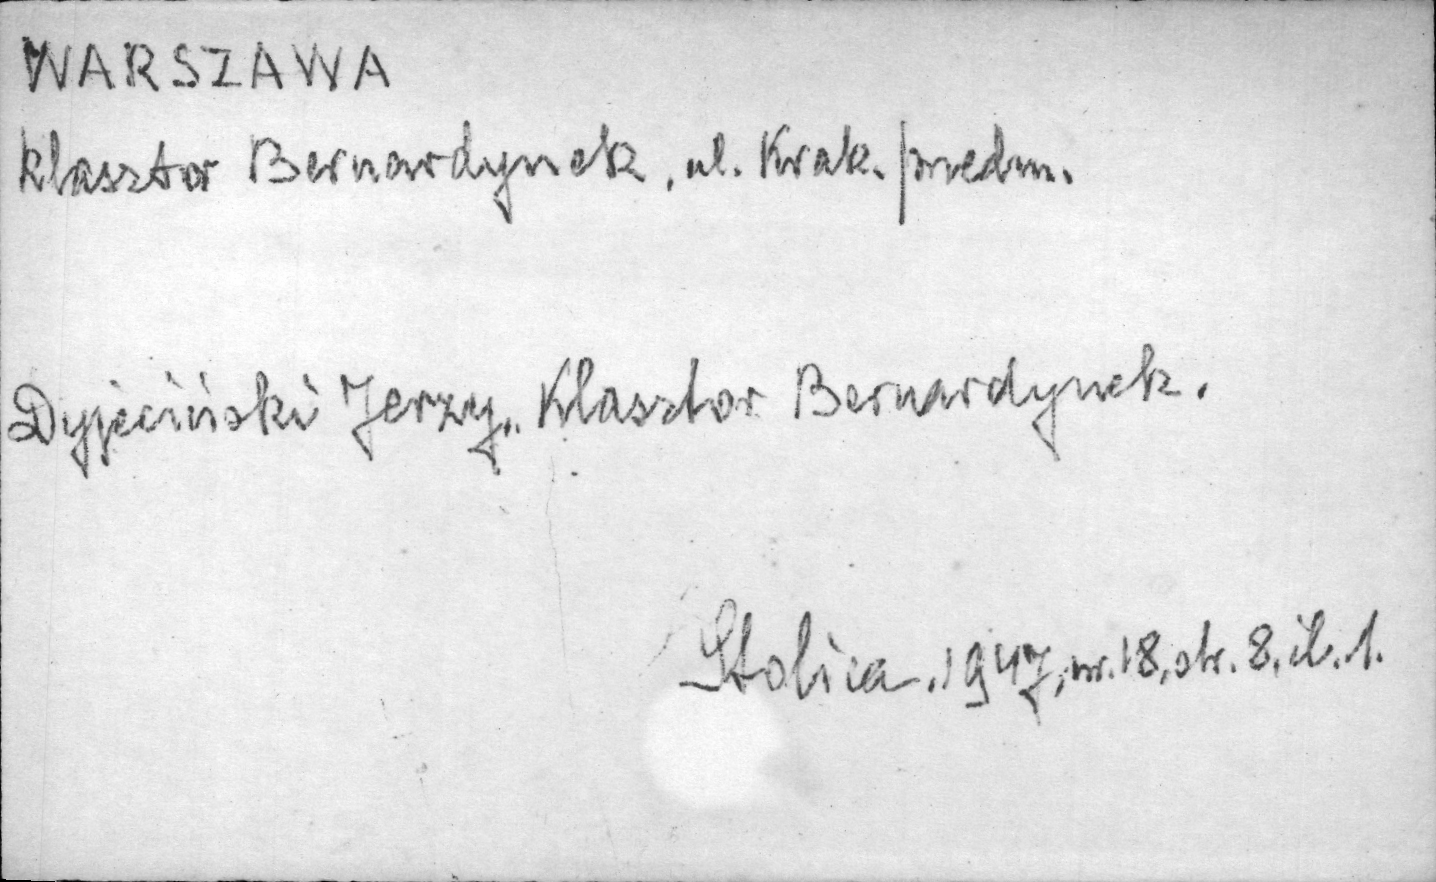 WARSZAWA
klasztor Bernardynek, ul. Krak. przedm.
Dyjeciński Jerzy,, Klasztor Bernardynek.
Stolica, 1947, nr. 18, str. 8, il. 1.